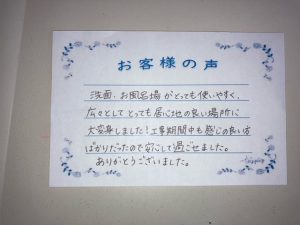 お客様の声
洗面、お風呂場がとっても使いやすく、
広々としてとっても居心地の良い場所に
大変身しました！工事期間中も感じの良い方
ばかりだったので安心して過ごせました。
ありがとうございました。